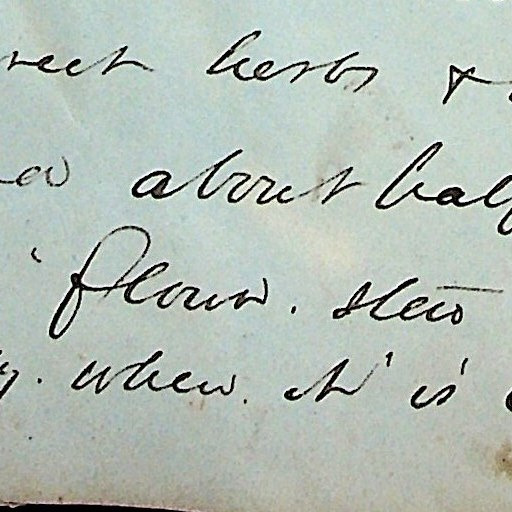 herbs &
about half
flour. stew
when. it is